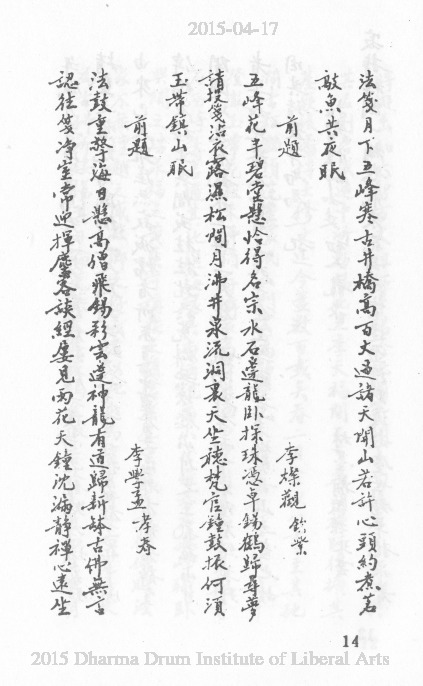 2015-04-17
法笈月下五峰寒古井橋高百丈通諸天開山若許心頭約煮茗
敲魚共夜眠
前題 李燦觀
五峰花半碧堂懸恰得名宗水石邊龍臥探珠憑卓錫鶴歸尋夢
請授箋沾衣露濕松間月沸井泉流洞裏天坐聽梵宮鐘鼓振何須
玉帶鎮山眠
前題 李學孟孝春
法鼓重擊海日懸高僧飛錫彩雲邊神龍有道歸新鉢古佛無言
認往箋淨室常迎揮麈客談經屢見雨花天鐘沈漏靜禪心遠坐
14
2015 Dharma Drum Institute of Liberal Arts